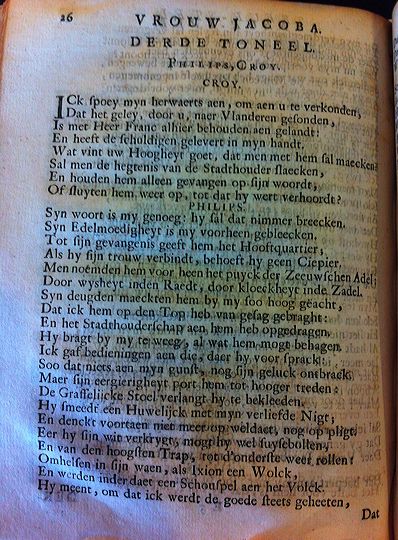 26
VROUW JACOBA.
DERDE TONEEL.
PHILIPS, CROY.
CROY.
ICk spoey myn herwaerts aen, om aen u te verkonden,
Dat het geley, door u, naer Vlanderen gesonden,
Is met Heer Franc alhier behouden aen gelandt:
En heeft de schuldigen gelevert in myn handt.
Wat vint uw Hoogheyt goet, dat men met hem sal maecken?
Sal men de hegtenis van de Stadthouder slaecken,
En houden hem alleen gevangen op sijn woordt;
Of sluyten hem weer op, tot dat hy wert verhoordt?
PHILIPS.
Syn woort is my genoeg: hy sal dat nimmer breecken.
Syn Edelmoedigheyt is my voorheen gebleecken.
Tot sijn gevangenis geeft hem het Hooftquartier;
Als hy sijn trouw verbindt, behoeft hy geen Cipier.
Men noemden hem voor heen het puyck der Zeeuwschen Adel;
Door wysheyt inden Raedt, door kloeckheyt inde Zadel.
Syn deugden maeckten hem by my soo hoog geacht,
Dat ick hem op den Top heb van gesag gebraght:
En het Stadthouderschap aen hem heb opgedragen.
Hy bragt by my te weeg, al wat hem mogt behagen.
Ick gaf bedieningen aen die, daer hy voor sprack:
Soo dat niets aen myn gunst, nog sijn geluck ontbrack.
Maer sijn eergierigheyt port hem tot hooger treden:
De Graffelijcke Stoel verlangt hy te bekleeden.
Hy smeedt een Huwelijck met myn verliefde Nigt;
En denckt voortaen niet meer op weldaet, nog op pligt.
Eer hy sijn wit verkrygt, mogt hy wel suysebollen,
En van den hoogsten Trap, tot d'onderste weer rollen:
Omhelsen in sijn waen, als Ixion een Wolck,
En werden inder daet een Schouspel aen het Volck.
Hy meent, om dat ick werdt de goede steets geheeten,
Dat